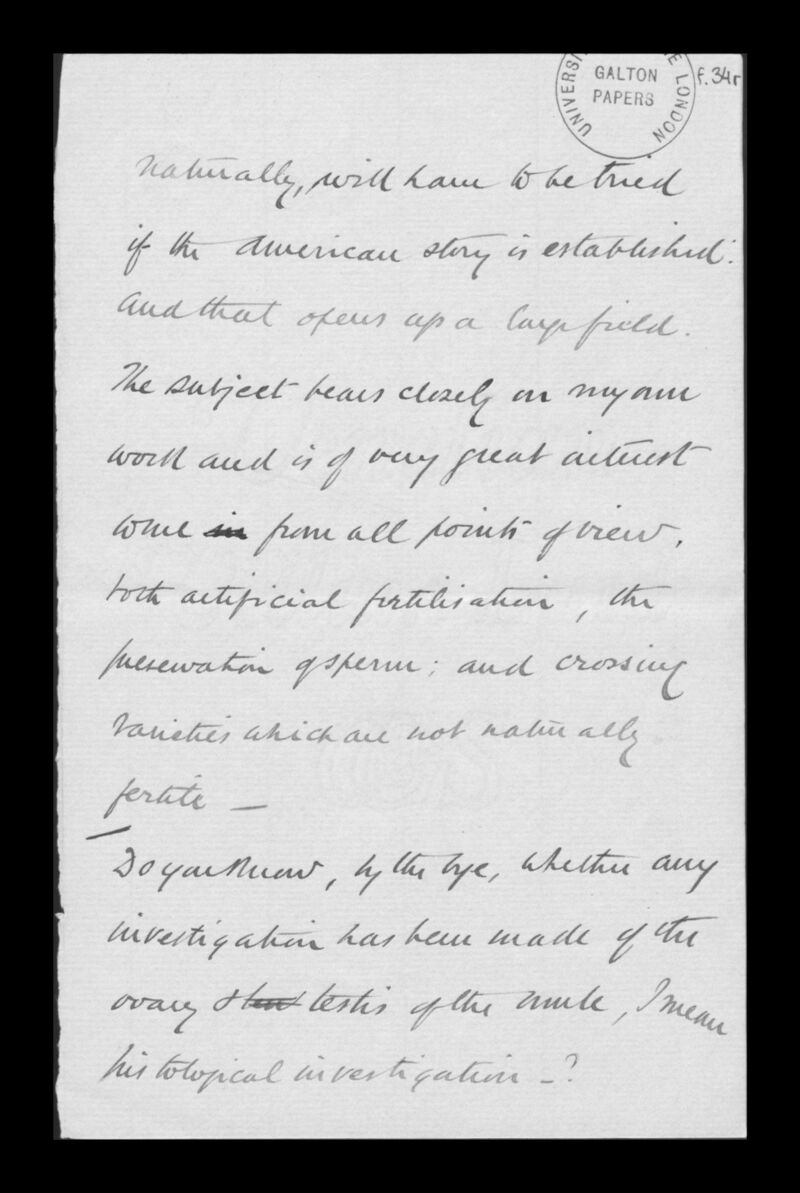 UNIVERSI
E LONDON
GALTON
PAPERS
f.34r
naturally, will have to be tried
if the American story is established.
And that opens up a large field.
The subject bears closely on my own
work and is of very great interest
to me in from all points of view,
both artificial fertilisation, the
preservation of sperm; and crossing
varieties which are not naturally
fertile —
Do you know, by the bye, whether any
investigation has been made of the
ovary & testis of the mule, I mean
histological investigation –?